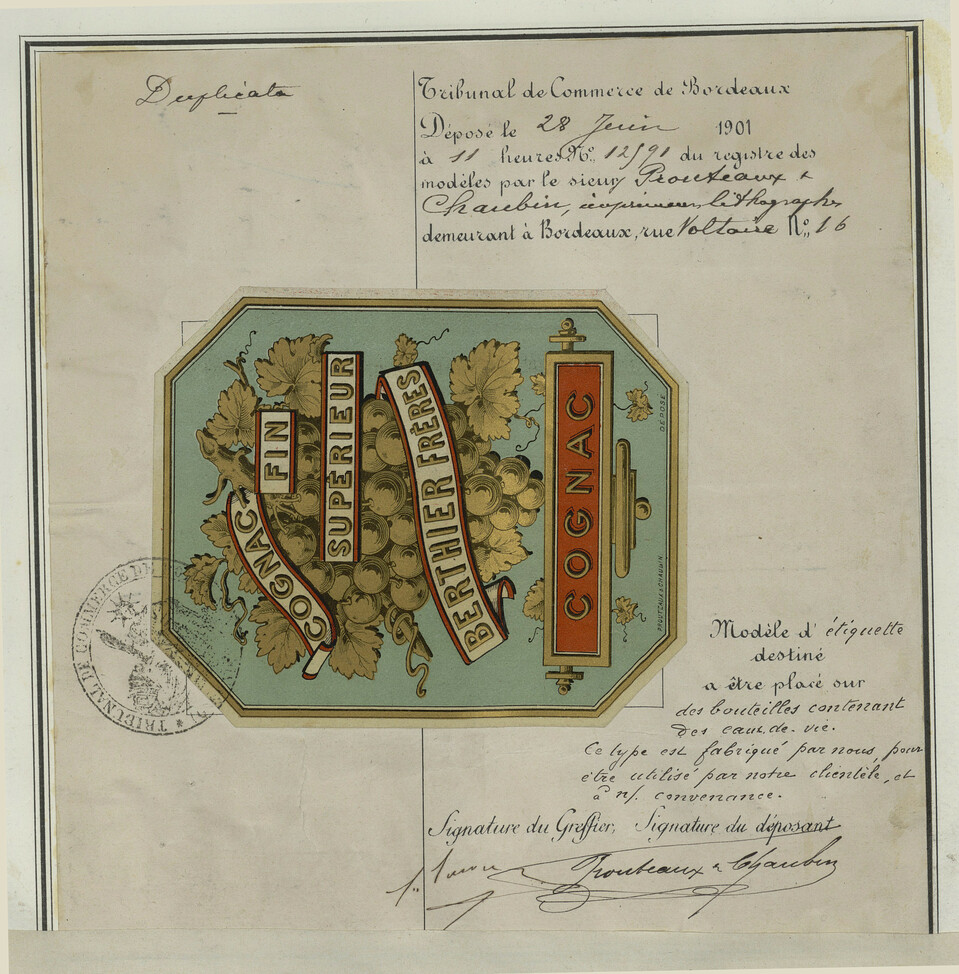 Duplicata
Tribunal de Commerce de Bordeaux
Déposé le 28 Juin 1901
à 11 heures No. 12591 du registre des
modèles par le sieurs Prouteaux &
Chaubin, imprimeurs lithographes
demeurant à Bordeaux, rue Voltaire No. 16
COGNAC
FIN
SUPÉRIEUR
BERTHIER FRÈRES
COGNAC
DÉPOSÉ
PROUTEAUX & CHAUBIN
TRIBUNAL DE COMMERCE DE
Modèle d'étiquette
destiné
a être placé sur
des bouteilles contenant
des eaux-de-vie.
Ce type est fabriqué par nous, pour
être utilisé par notre clientèle, et
à n/. convenance.
Signature du Greffier, Signature du déposant
Prouteaux & Chaubin